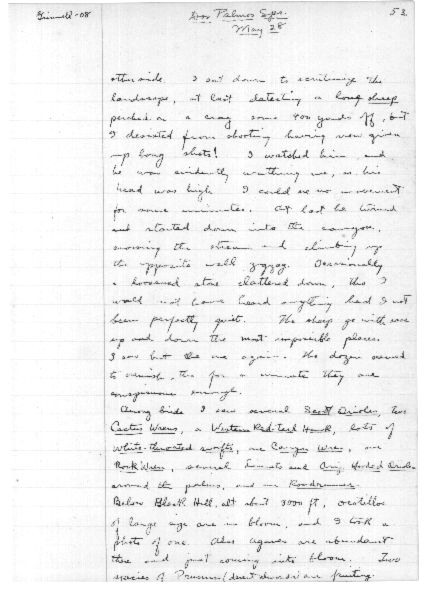 Grinnell-08
Dos Palmos Spgs.
May 28
53.
other side. I sat down to scrutinize the
landscape, at last detecting a long sheep
perched on a crag some 400 yards off, but
I desisted from shooting having now given
up long shots! I watched him, and
he was evidently watching me, as his
head was high. I could see no movement
for some minutes. At last he turned
and started down into the canyon,
crossing the stream and climbing up
the opposite wall zigzag. Occasionally
a loosened stone clattered down, tho I
would not have heard anything had I not
been perfectly quiet. The sheep go with ease
up and down the most impossible places.
I saw but the one again. The dozen seemed
to vanish, tho for a minute they are
conspicuous enough.
Among birds I saw several Scott Orioles, two
Cactus Wrens, a Western Red-tail Hawk, lots of
White-throated swifts, one Canyon Wren, one
Rock Wren, several linnets and Ariz. Hooded Orioles
around the palms, and one Roadrunner.
Below Black Hill, alt. about 3000 ft, ocotillos
of large size are in bloom, and I took a
photo of one. Also agaves are abundant
there and just coming into bloom. Two
species of Prunus (desert almonds) are fruiting.